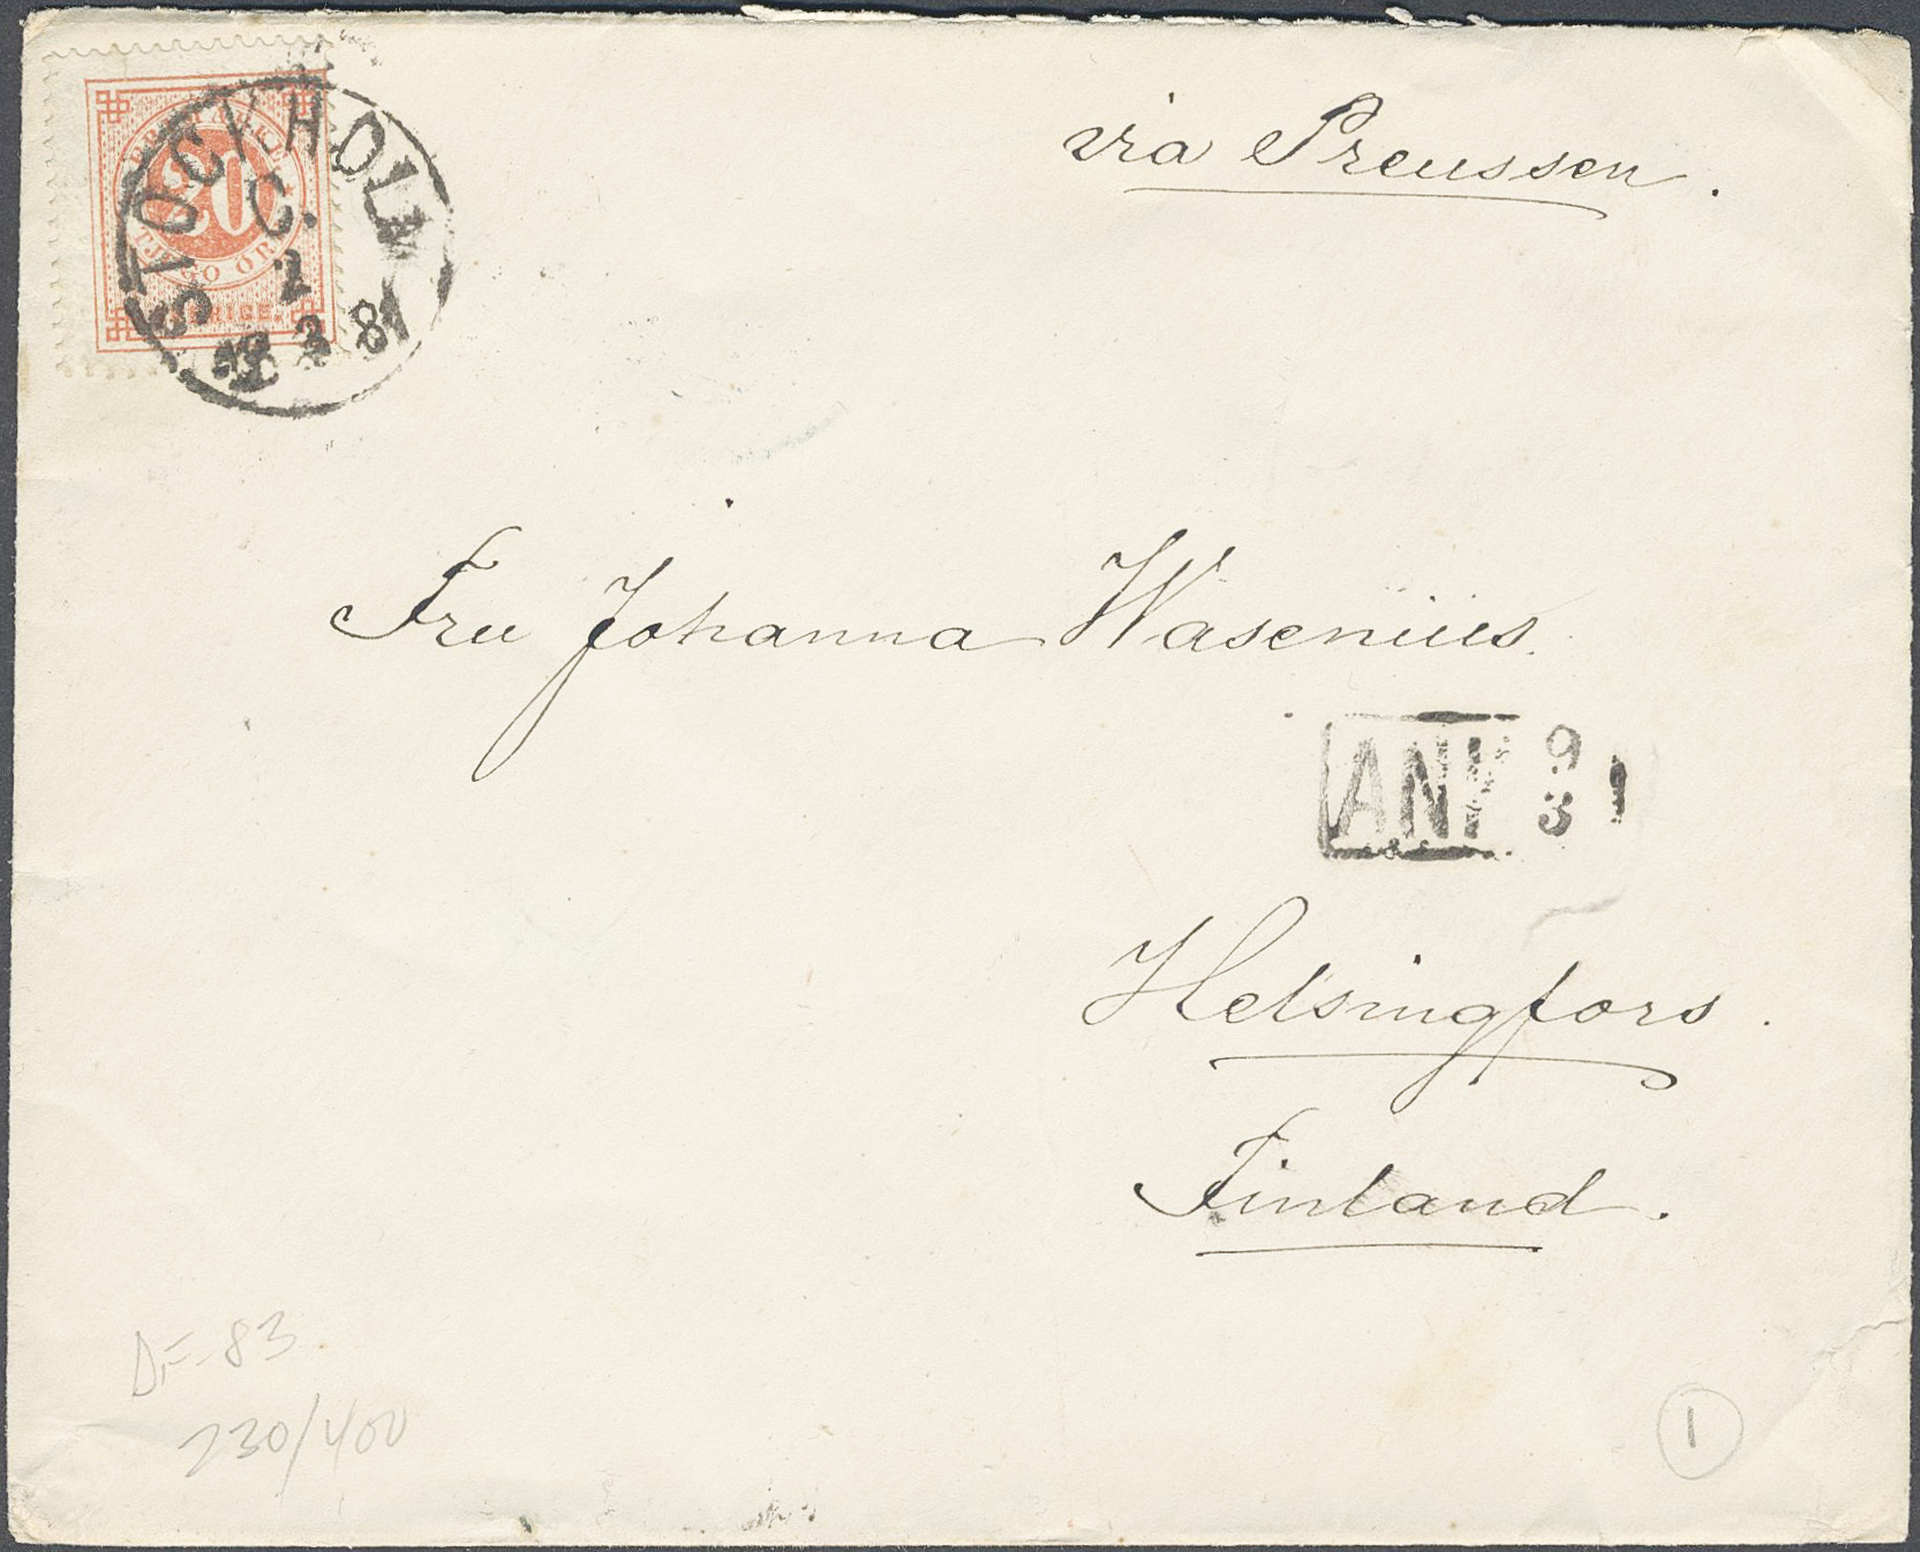 via Preussen.
FRIMÄRKE
20
TJUGO ÖRE
SVERIGE.
STOCKHOLM
C.
2
3 81
Fru Johanna Wasenius.
ANK 9
3
Helsingfors.
Finland.
DF-83
230/400
1